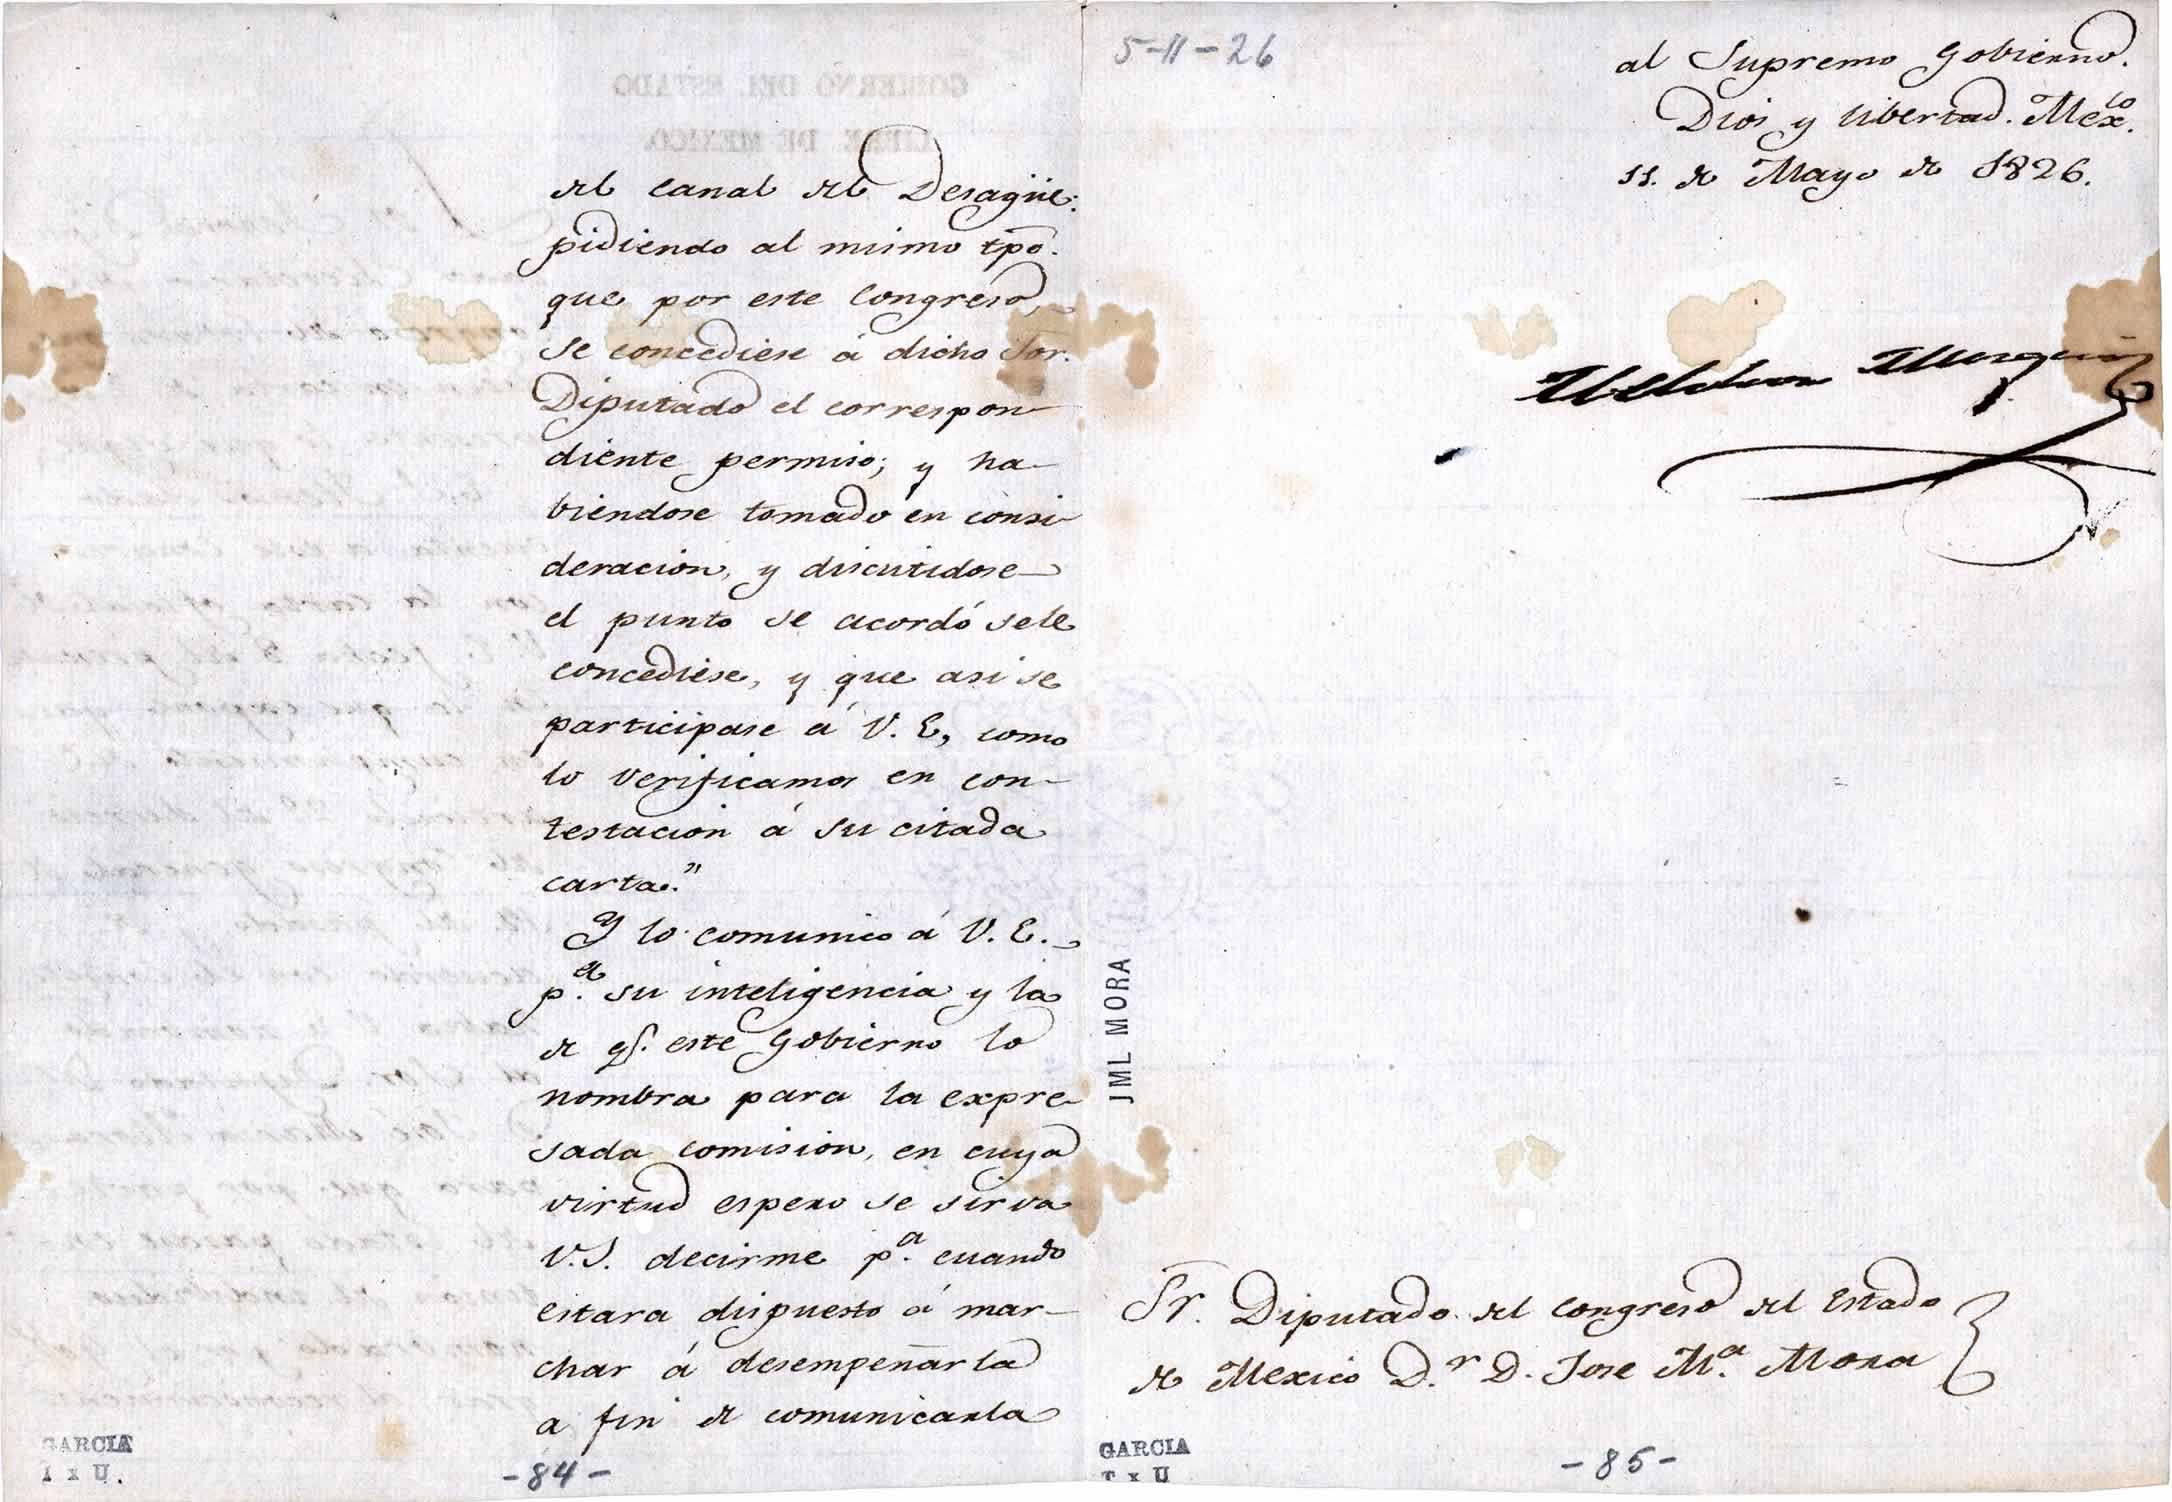 del canal del Desagüe:
pidiendo al mismo tpõ.
que por este Congreso,
se concediese á dicho Sor.
Diputado el correspon-
diente permiso; y ha-
biendose tomado en consi-
deracion, y discutidose
el punto se acordó sele
concediese, y que asi se
participase á V. E, como
lo verificamos en con-
testacion á su citada
carta."
Y lo comunico á V. E.
p.a su inteligencia y la
de q.e este Gobierno lo
nombra para la expre-
sada comision, en cuya
virtud espero se sirva
V. S. decirme p.a cuando
estara dispuesto á mar-
char á desempeñarla
a fin de comunicarla
-84-
GARCIA
5-11-26
al Supremo Gobierno.
Dios y libertad. Mex.co
11. de Mayo de 1826.
Melchor Muzquiz
JML MORA
Sr. Diputado del Congreso del Estado
de Mexico D.r D. Jose M.a Mora
GARCIA
-85-